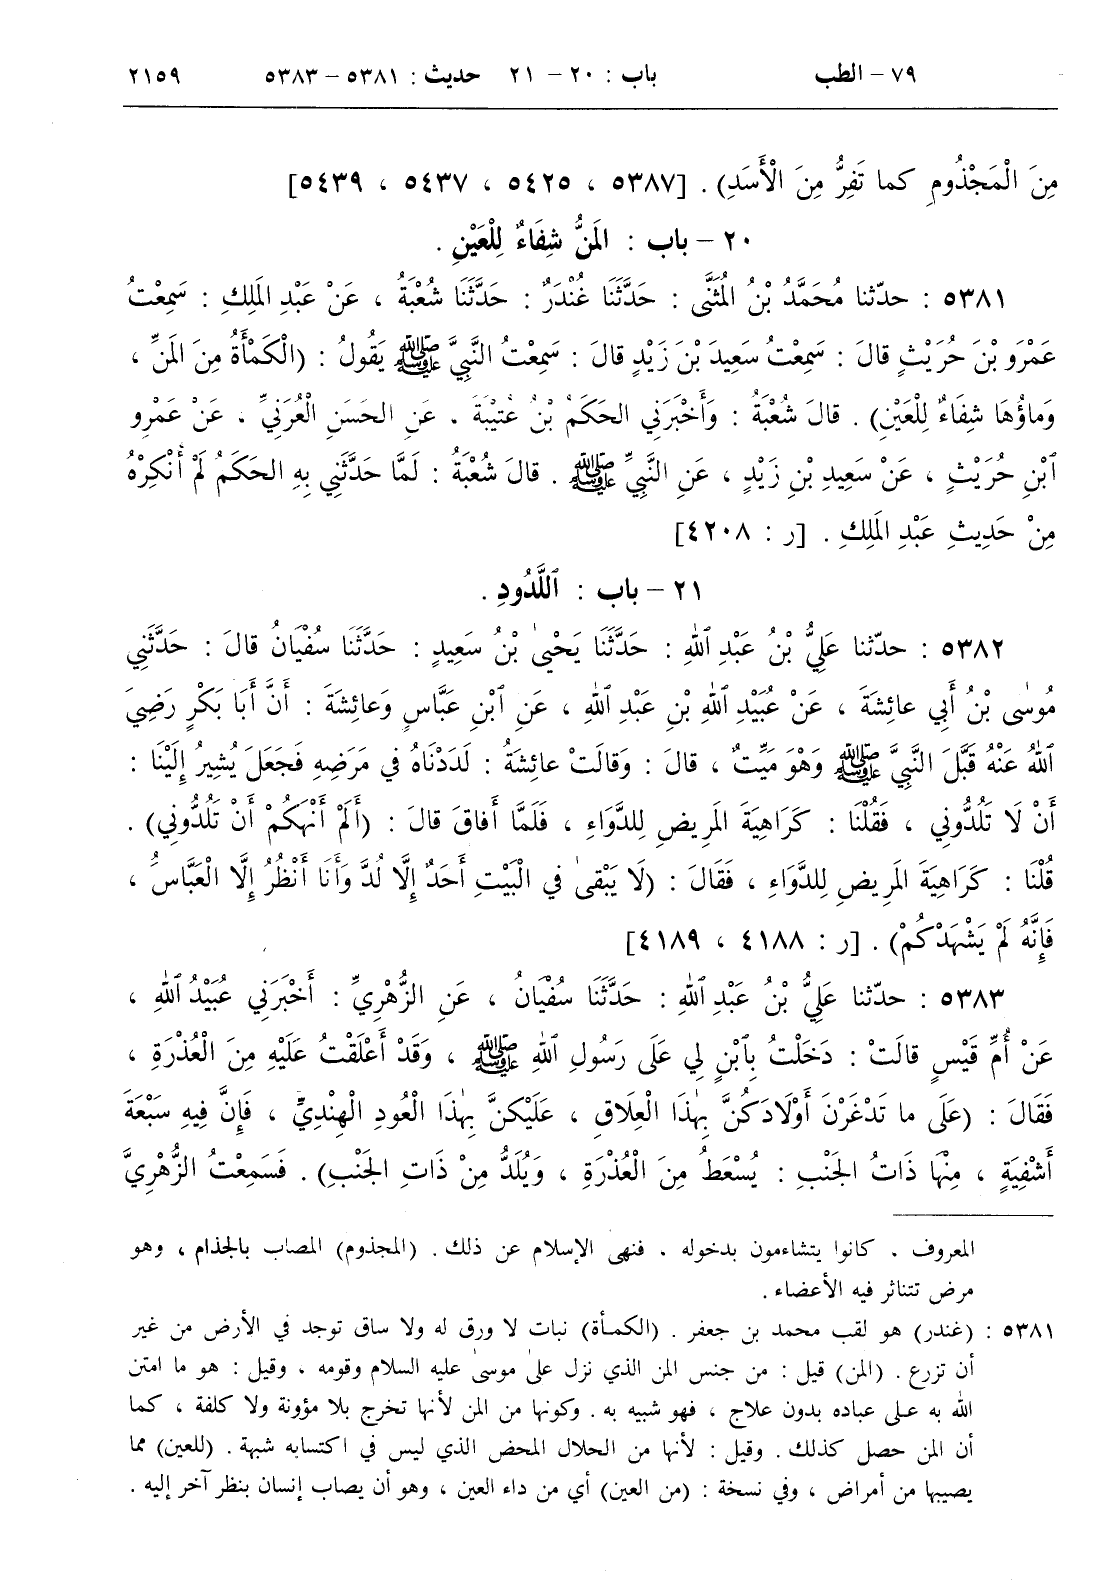 ٧٩ - الطب باب : ٢٠ - ٢١ حديث : ٥٣٨١ - ٥٣٨٣ ٢١٥٩
مِنَ الْمَجْذُومِ كما تَفِرُّ مِنَ الْأَسَدِ) . [٥٣٨٧ ، ٥٤٢٥ ، ٥٤٣٧ ، ٥٤٣٩]
٢٠ - باب : المَنُّ شِفَاءٌ لِلْعَيْنِ .
٥٣٨١ : حدّثنا مُحَمَّدُ بْنُ المُثَنَّى : حَدَّثَنَا غُنْدَرٌ : حَدَّثَنَا شُعْبَةُ ، عَنْ عَبْدِ المَلِكِ : سَمِعْتُ
عَمْرَو بْنَ حُرَيْثٍ قالَ : سَمِعْتُ سَعِيدَ بْنَ زَيْدٍ قالَ : سَمِعْتُ النَّبِيَّ ﷺ يَقُولُ : (الْكَمْأَةُ مِنَ المَنِّ ،
وَماؤُهَا شِفَاءٌ لِلْعَيْنِ) . قالَ شُعْبَةُ : وَأَخْبَرَنِي الحَكَمُ بْنُ عُتَيْبَةَ ، عَنِ الحَسَنِ الْعُرَنِيِّ ، عَنْ عَمْرِو
ٱبْنِ حُرَيْثٍ ، عَنْ سَعِيدِ بْنِ زَيْدٍ ، عَنِ النَّبِيِّ ﷺ . قالَ شُعْبَةُ : لَمَّا حَدَّثَنِي بِهِ الحَكَمُ لَمْ أُنْكِرْهُ
مِنْ حَدِيثِ عَبْدِ المَلِكِ . [ر : ٤٢٠٨]
٢١ - باب : ٱللَّدُودِ .
٥٣٨٢ : حدّثنا عَلِيُّ بْنُ عَبْدِ ٱللهِ : حَدَّثَنَا يَحْيىٰ بْنُ سَعِيدٍ : حَدَّثَنَا سُفْيَانُ قالَ : حَدَّثَنِي
مُوسٰى بْنُ أَبِي عائِشَةَ ، عَنْ عُبَيْدِ ٱللهِ بْنِ عَبْدِ ٱللهِ ، عَنِ ٱبْنِ عَبَّاسٍ وَعائِشَةَ : أَنَّ أَبَا بَكْرٍ رَضِيَ
ٱللهُ عَنْهُ قَبَّلَ النَّبِيَّ ﷺ وَهْوَ مَيِّتٌ ، قالَ : وَقالَتْ عائِشَةُ : لَدَدْنَاهُ فِي مَرَضِهِ فَجَعَلَ يُشِيرُ إِلَيْنَا :
أَنْ لَا تَلُدُّونِي ، فَقُلْنَا : كَرَاهِيَةَ المَرِيضِ لِلدَّوَاءِ ، فَلَمَّا أَفاقَ قالَ : (أَلَمْ أَنْهَكُمْ أَنْ تَلُدُّونِي) .
قُلْنَا : كَرَاهِيَةَ المَرِيضِ لِلدَّوَاءِ ، فَقَالَ : (لَا يَبْقىٰ فِي الْبَيْتِ أَحَدٌ إِلَّا لُدَّ وَأَنَا أَنْظُرُ إِلَّا الْعَبَّاسَ ،
فَإِنَّهُ لَمْ يَشْهَدْكُمْ) . [ر : ٤١٨٨ ، ٤١٨٩]
٥٣٨٣ : حدّثنا عَلِيُّ بْنُ عَبْدِ ٱللهِ : حَدَّثَنَا سُفْيَانُ ، عَنِ الزُّهْرِيِّ : أَخْبَرَنِي عُبَيْدُ ٱللهِ ،
عَنْ أُمِّ قَيْسٍ قالَتْ : دَخَلْتُ بِٱبْنٍ لِي عَلَى رَسُولِ ٱللهِ ﷺ ، وَقَدْ أَعْلَقْتُ عَلَيْهِ مِنَ الْعُذْرَةِ ،
فَقَالَ : (عَلَى ما تَدْغَرْنَ أَوْلَادَكُنَّ بِهٰذَا الْعِلَاقِ ، عَلَيْكُنَّ بِهٰذَا الْعُودِ الْهِنْدِيِّ ، فَإِنَّ فِيهِ سَبْعَةَ
أَشْفِيَةٍ ، مِنْهَا ذَاتُ الجَنْبِ : يُسْعَطُ مِنَ الْعُذْرَةِ ، وَيُلَدُّ مِنْ ذَاتِ الجَنْبِ) . فَسَمِعْتُ الزُّهْرِيَّ
المعروف . كانوا يتشاءمون بدخوله ، فنهى الإسلام عن ذلك . (المجذوم) المصاب بالجذام ، وهو
مرض تتناثر فيه الأعضاء .
٥٣٨١ : (غندر) هو لقب محمد بن جعفر . (الكمأة) نبات لا ورق له ولا ساق توجد في الأرض من غير
أن تزرع . (المن) قيل : من جنس المن الذي نزل علىٰ موسىٰ عليه السلام وقومه ، وقيل : هو ما امتن
الله به على عباده بدون علاج ، فهو شبيه به . وكونها من المن لأنها تخرج بلا مؤونة ولا كلفة ، كما
أن المن حصل كذلك . وقيل : لأنها من الحلال المحض الذي ليس في اكتسابه شبهة . (للعين) مما
يصيبها من أمراض ، وفي نسخة : (من العين) أي من داء العين ، وهو أن يصاب إنسان بنظر آخر إليه .